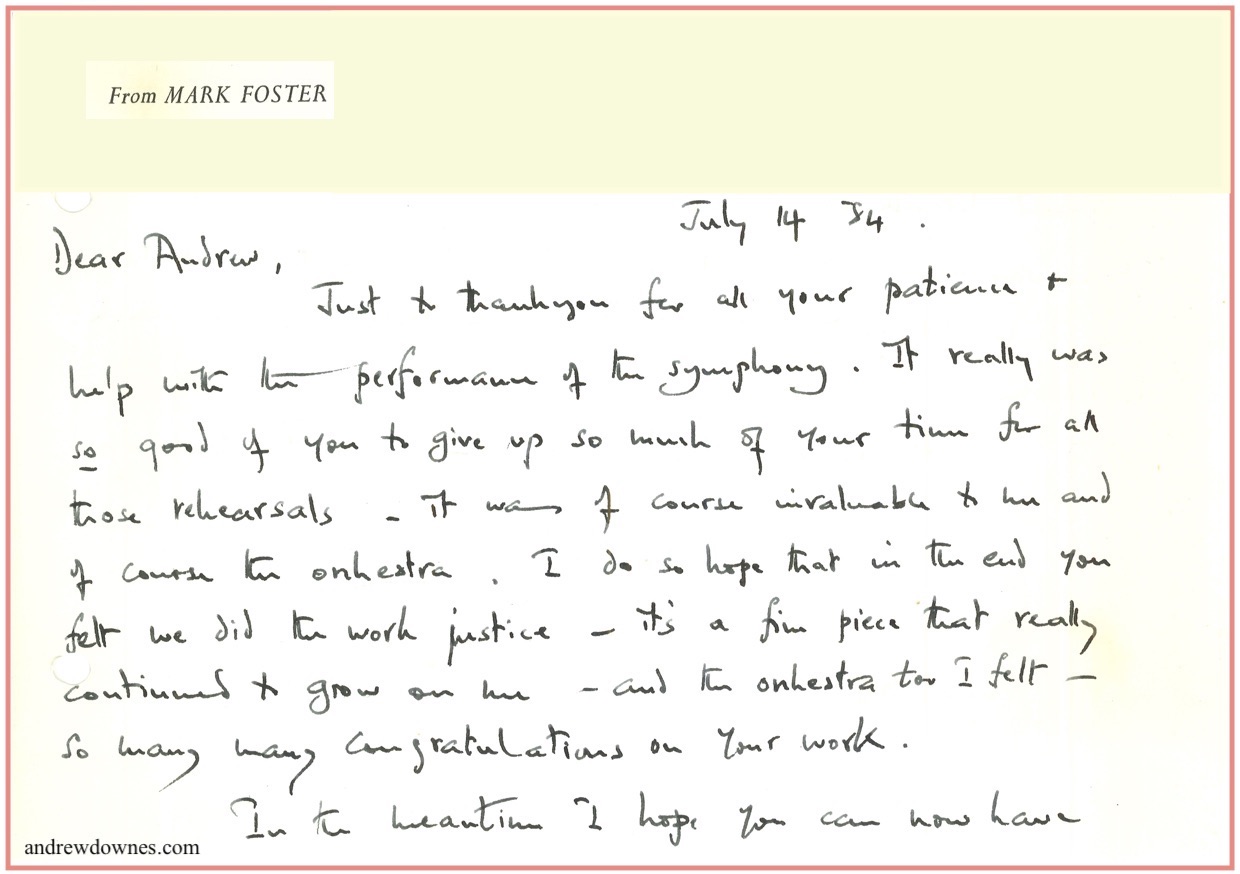 From MARK FOSTER
July 14 84.
Dear Andrew,
Just to thankyou for all your patience +
help with the performance of the symphony. It really was
so good of you to give up so much of your time for all
those rehearsals - it was of course invaluable to me and
of course the orchestra. I do so hope that in the end you
felt we did the work justice - it's a fine piece that really
continued to grow on me - and the orchestra too I felt -
so many many congratulations on your work.
In the meantime I hope you can now have
andrewdownes.com